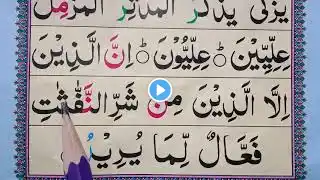 يَزَّكّٰى يَذَّكَّرُ الْمُدَّثِّرُ الْمُزَّمِّلُ
عِلِّيِّيْنَ ○ عِلِّيُّوْنَ ○ اِنَّ الَّذِيْنَ
اِلَّا الَّذِيْنَ مِنْ شَرِّ النَّفّٰثٰتِ
فَعَّالٌ لِّمَا يُرِيْدُ